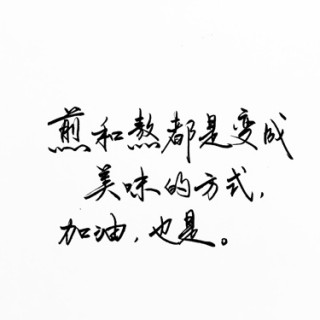 煎和熬都是变成
美味的方式,
加油,也是。